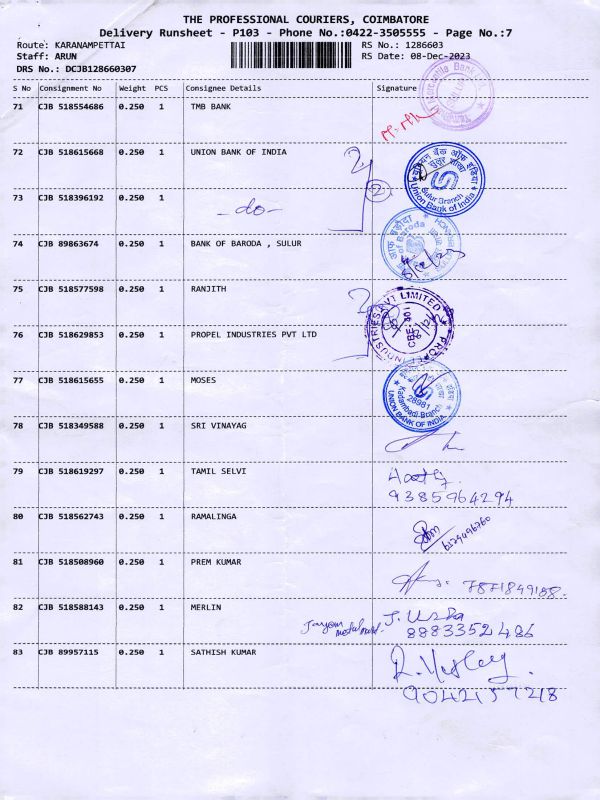 THE PROFESSIONAL COURIERS, COIMBATORE
Delivery Runsheet - P103 - Phone No.:0422-3505555 - Page No.:7
Route: KARANAMPETTAI RS No.: 1286603
Staff: ARUN RS Date: 08-Dec-2023
DRS No.: DCJB128660307
S No Consignment No Weight PCS Consignee Details Signature
71 CJB 518554686 0.250 1 TMB BANK
72 CJB 518615668 0.250 1 UNION BANK OF INDIA
Sulur Branch
Union Bank of India
73 CJB 518396192 0.250 1 -do- 2
74 CJB 89863674 0.250 1 BANK OF BARODA , SULUR
75 CJB 518577598 0.250 1 RANJITH
76 CJB 518629853 0.250 1 PROPEL INDUSTRIES PVT LTD
77 CJB 518615655 0.250 1 MOSES
28981
Kadambadi Branch
UNION BANK OF INDIA
78 CJB 518349588 0.250 1 SRI VINAYAG
79 CJB 518619297 0.250 1 TAMIL SELVI
9385964294
80 CJB 518562743 0.250 1 RAMALINGA
81 CJB 518508960 0.250 1 PREM KUMAR
82 CJB 518588143 0.250 1 MERLIN J. Usha
8883352486
83 CJB 89957115 0.250 1 SATHISH KUMAR
9042157218